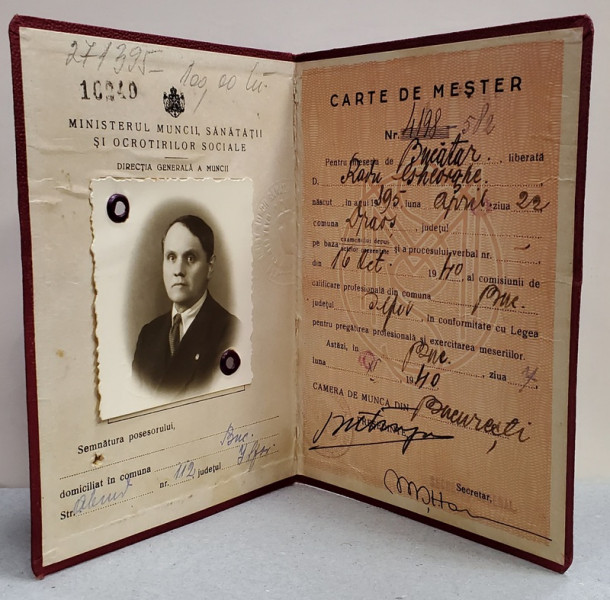 271395-
100,00 lei
10240
MINISTERUL MUNCII, SĂNĂTĂȚII
ȘI OCROTIRILOR SOCIALE
DIRECȚIA GENERALĂ A MUNCII
Semnătura posesorului,
domiciliat în comuna Buc.
nr. 112 județul Ilfov
Str.
CARTE DE MEȘTER
Nr. 4198 - 582
Pentru meseria de Bucătar, liberată
D. Radu Gheorghe,
născut în anul 1905, luna April, ziua 22
comuna , județul
pe baza și a procesului verbal nr. -
din 16 Oct. 1940, al comisiunii de
calificare profesională din comuna Buc.
județul Ilfov, în conformitate cu Legea
pentru pregătirea profesională și exercitarea meseriilor.
Astăzi, în Buc., ziua 7,
luna XI, 1940
CAMERA DE MUNCĂ DIN București
Secretar,